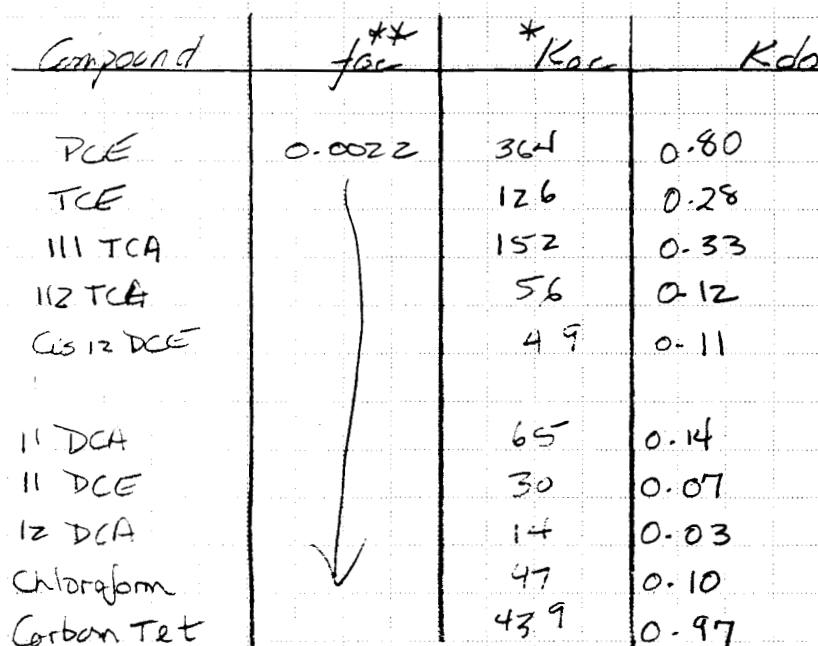 Compound foc** *Koc Kdo
PCE 0.0022 364 0.80
TCE 126 0.28
111 TCA 152 0.33
112 TCA 56 0.12
Cis 12 DCE 49 0.11
11 DCA 65 0.14
11 DCE 30 0.07
12 DCA 14 0.03
Chloroform 47 0.10
Carbon Tet 439 0.97